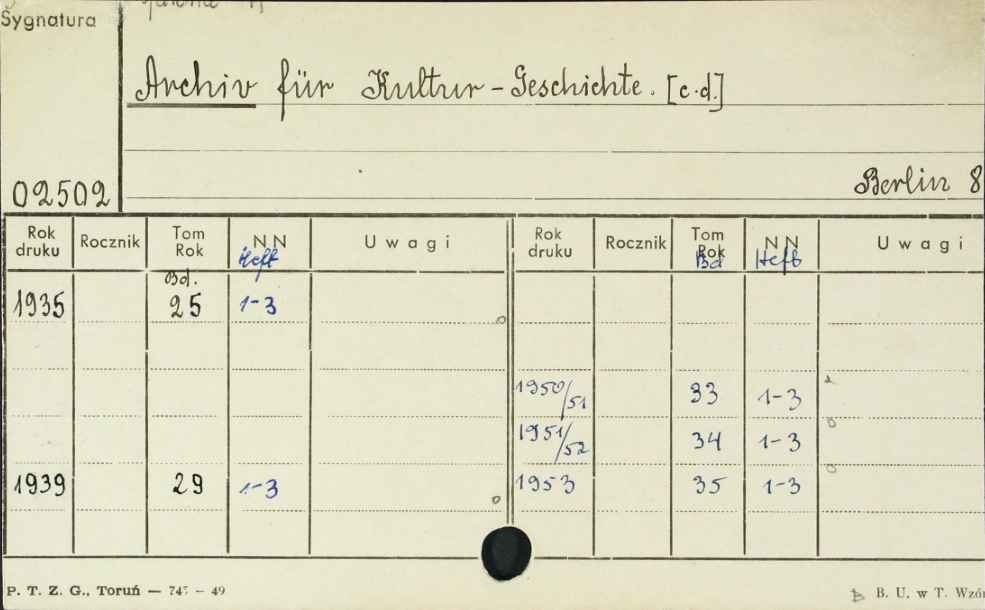 Sygnatura
Archiv für Kultur-Geschichte. [c.d.]
02502
Berlin 8
Rok druku Rocznik Tom Rok NN Uwagi Rok druku Rocznik Tom Rok NN Uwagi
Heft Bd Heft
Bd.
1935 25 1-3
1950/51 33 1-3
1951/52 34 1-3
1939 29 1-3 1953 35 1-3
P. T. Z. G., Toruń — 745 — 49
B. U. w T. Wzór